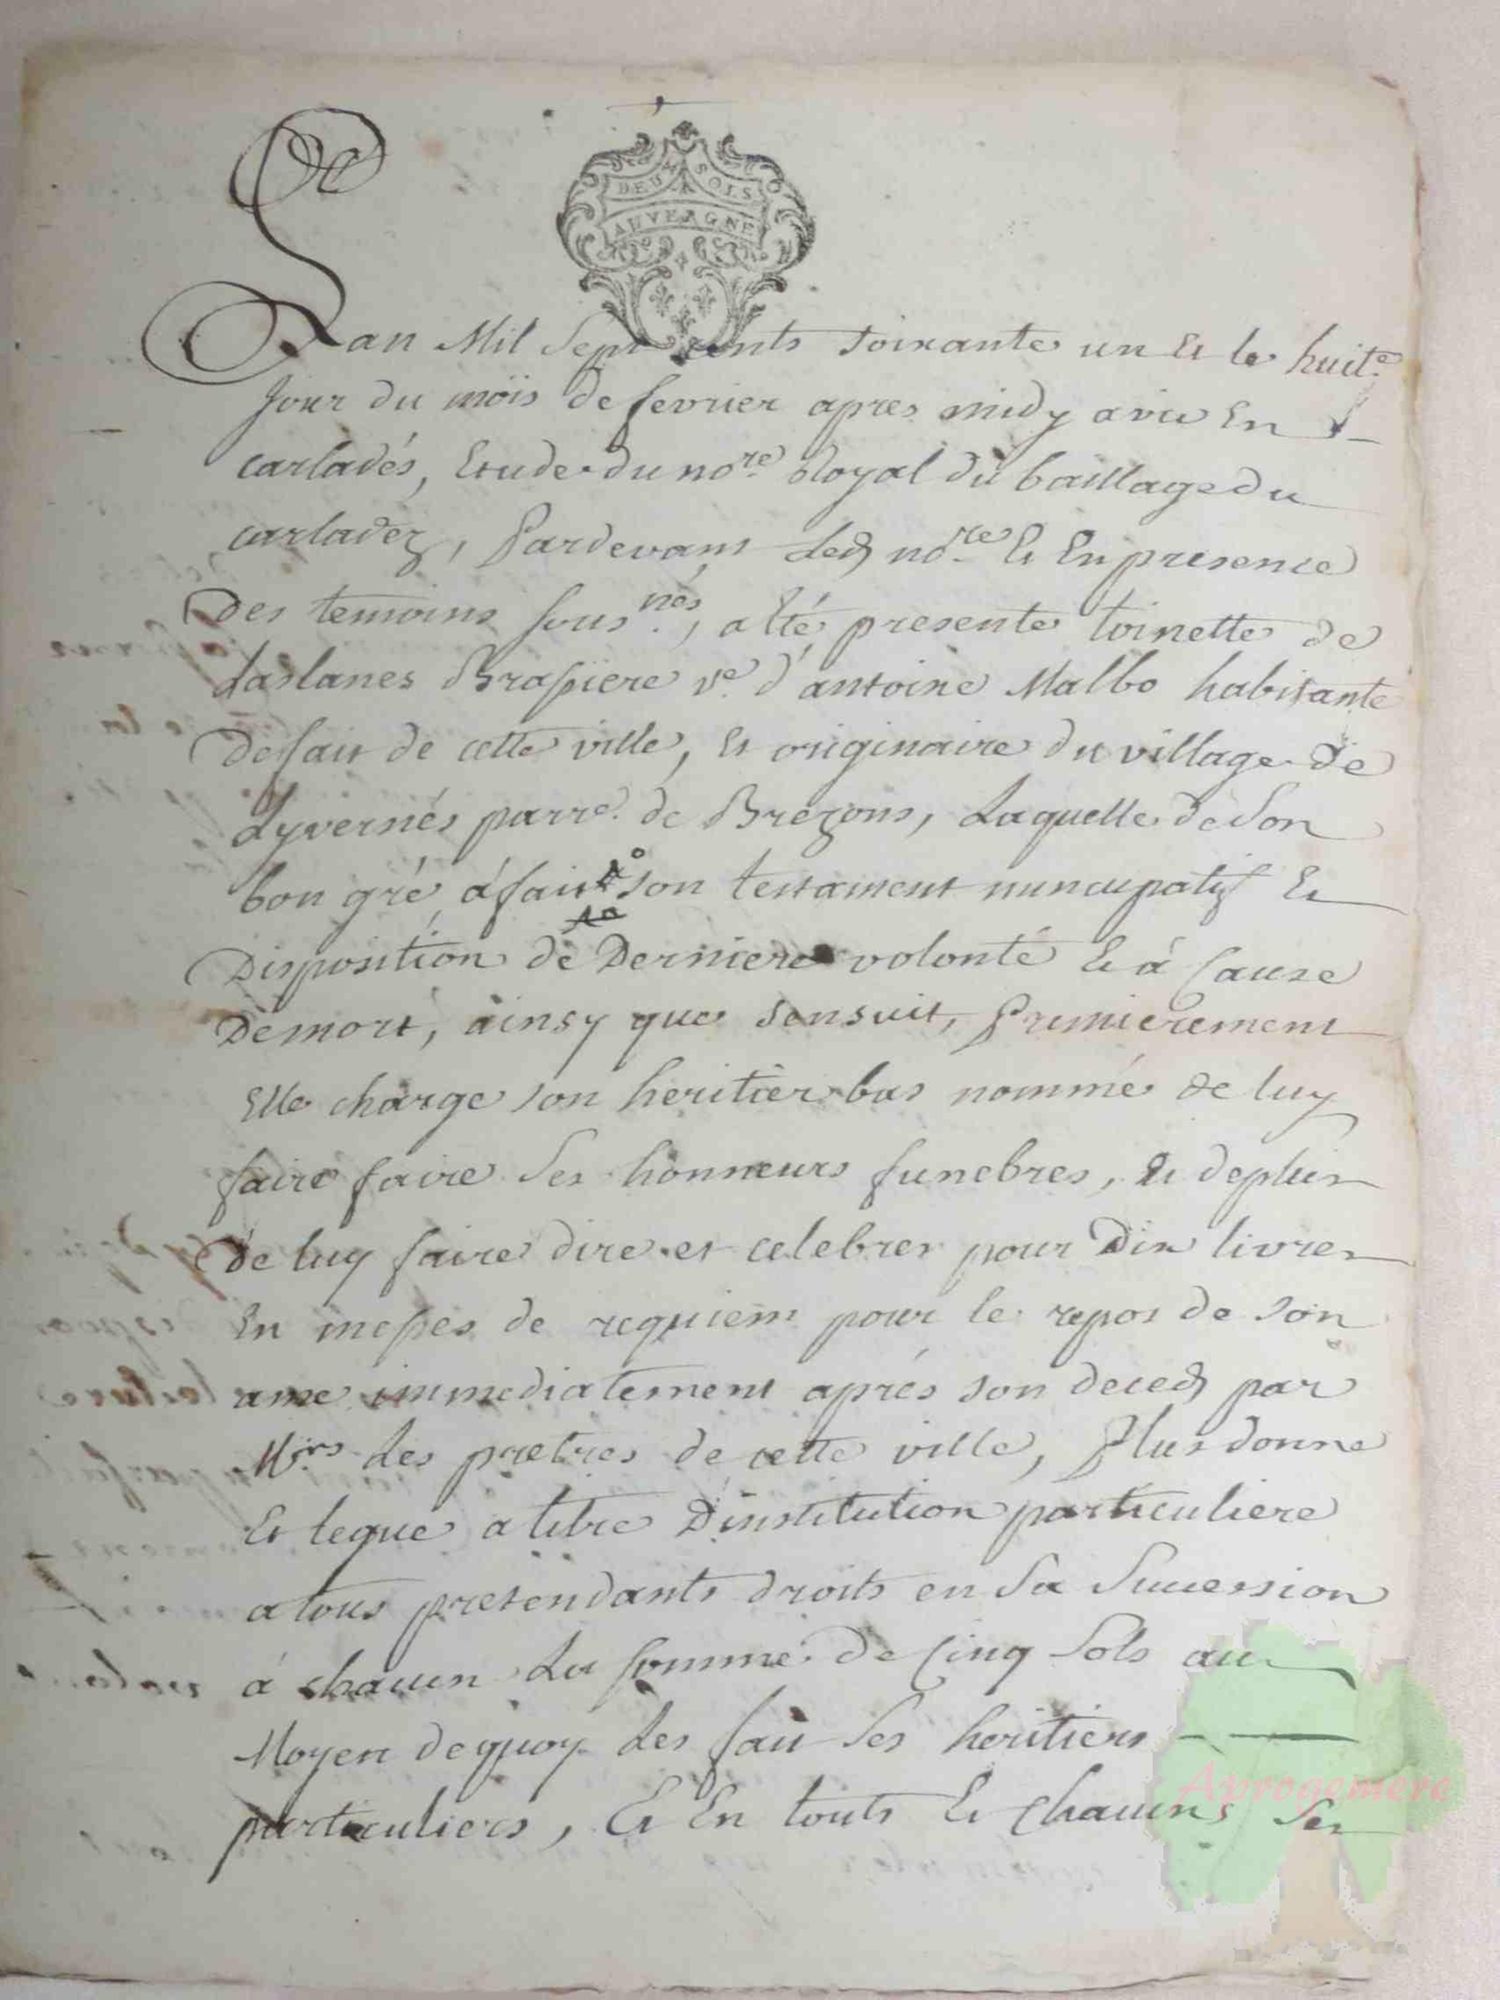 DEUX SOLS
AUVERGNE
Lan Mil Sept cents soixante un et le huite.
Jour du mois de fevrier apres midy a vic En
carladés, Etude du nore. Royal du baillage du
carladez, Pardevant Led nore. Et En presence
Des temoins sousnés., a Eté presente toinette de
Laslanes Brassiere ve. d'antoine Malbo habitante
de fait de cette ville, Et originaire du village de
Lyvernés parre. de Brezons, Laquelle de son
bon gré á fait son testament nuncupatif Et
Disposition de Derniere volonté Et á Cause
De mort, ainsy que sensuit, Premierement
Elle charge son heritier bas nommé de luy
faire faire Ses honneurs funebres, Et deplus
de luy faire dire et celebrer pour Dix livres
En messes de requiem pour le repos de son
ame immediatement aprés son deced par
Mrs Les pretres de cette ville, Plus donne
Et legue a titre D'institution particuliere
a tous pretendants droits en Sa Succession
á chacun La somme de Cinq Sols au
Moyen de quoy Les fait Ses heritiers
particuliers, Et En touts Et Chacuns Ses
Aprogemere